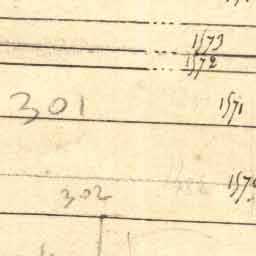 1573
1572
301
1571
302